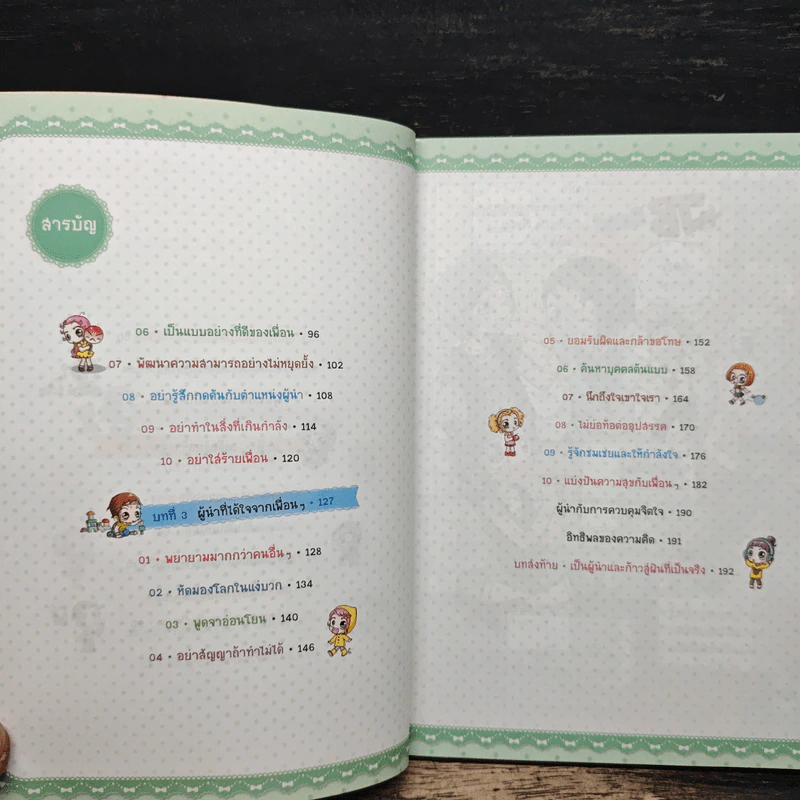 สารบัญ
06 • เป็นแบบอย่างที่ดีของเพื่อน • 96
07 • พัฒนาความสามารถอย่างไม่หยุดยั้ง • 102
08 • อย่ารู้สึกกดดันกับตำแหน่งผู้นำ • 108
09 • อย่าทำในสิ่งที่เกินกำลัง • 114
10 • อย่าใส่ร้ายเพื่อน • 120
บทที่ 3 ผู้นำที่ได้ใจจากเพื่อนๆ • 127
01 • พยายามมากกว่าคนอื่นๆ • 128
02 • หัดมองโลกในแง่บวก • 134
03 • พูดจาอ่อนโยน • 140
04 • อย่าสัญญาถ้าทำไม่ได้ • 146
05 • ยอมรับผิดและกล้าขอโทษ • 152
06 • ค้นหาบุคคลต้นแบบ • 158
07 • นึกถึงใจเขาใจเรา • 164
08 • ไม่ย่อท้อต่ออุปสรรค • 170
09 • รู้จักชมเชยและให้กำลังใจ • 176
10 • แบ่งปันความสุขกับเพื่อนๆ • 182
ผู้นำกับการควบคุมจิตใจ • 190
อิทธิพลของความคิด • 191
บทส่งท้าย • เป็นผู้นำและก้าวสู่ฝันที่เป็นจริง • 192